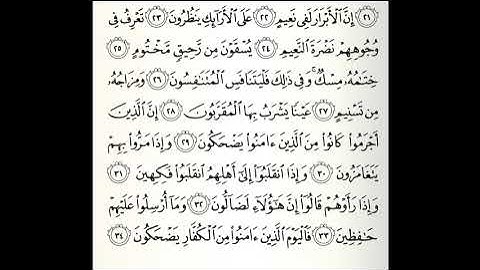 ٢١ إِنَّ ٱلْأَبْرَارَ لَفِى نَعِيمٍ ٢٢ عَلَى ٱلْأَرَآئِكِ يَنظُرُونَ ٢٣ تَعْرِفُ فِى
وُجُوهِهِمْ نَضْرَةَ ٱلنَّعِيمِ ٢٤ يُسْقَوْنَ مِن رَّحِيقٍ مَّخْتُومٍ ٢٥
خِتَـٰمُهُۥ مِسْكٌ ۚ وَفِى ذَٰلِكَ فَلْيَتَنَافَسِ ٱلْمُتَنَـٰفِسُونَ ٢٦ وَمِزَاجُهُۥ
مِن تَسْنِيمٍ ٢٧ عَيْنًا يَشْرَبُ بِهَا ٱلْمُقَرَّبُونَ ٢٨ إِنَّ ٱلَّذِينَ
أَجْرَمُوا۟ كَانُوا۟ مِنَ ٱلَّذِينَ ءَامَنُوا۟ يَضْحَكُونَ ٢٩ وَإِذَا مَرُّوا۟ بِهِمْ
يَتَغَامَزُونَ ٣٠ وَإِذَا ٱنقَلَبُوٓا۟ إِلَىٰٓ أَهْلِهِمُ ٱنقَلَبُوا۟ فَكِهِينَ ٣١
وَإِذَا رَأَوْهُمْ قَالُوٓا۟ إِنَّ هَـٰٓؤُلَآءِ لَضَآلُّونَ ٣٢ وَمَآ أُرْسِلُوا۟ عَلَيْهِمْ
حَـٰفِظِينَ ٣٣ فَٱلْيَوْمَ ٱلَّذِينَ ءَامَنُوا۟ مِنَ ٱلْكُفَّارِ يَضْحَكُونَ ٣٤